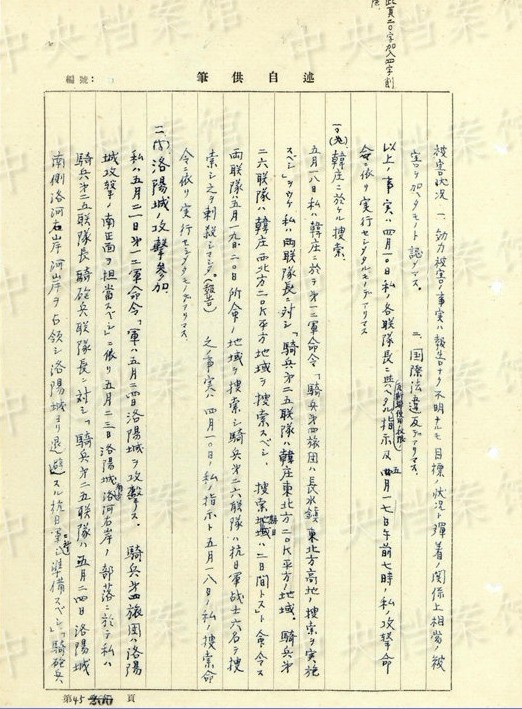 此頁二〇字加入四字削
編號：
筆供述自
被害状況 一、効力被害ノ事実ハ報告ナク不明ナルモ目標ノ状況ト弾着ノ関係上相当ノ被
害ヲ加ヘタモノト認メマス。 二、国際法違反デアリマス。
以上ノ事実ハ四月一〇日私ノ各联隊長ニ与ヘタル指示及五月一七日午前七時ノ私ノ攻撃命
令ニ依リ実行セシメタルモノデアリマス
韓庄ニ於ケル捜索。
五月一八日私ハ韓庄ニ於テ第一二軍命令「騎兵第四旅団ハ長水鎮東北方高地ノ捜索ヲ実施
スベシ」ヲウケ私ハ両联隊長ニ対シ「騎兵第二五联隊ハ韓庄東北方二〇K平方ノ地域。騎兵第
二六联隊ハ韓庄西北方二〇K平方地域ヲ捜索スベシ。捜索期日ハ二日間トスト命令ス
両联隊ハ五月一九、二〇日所命ノ地域ヲ捜索シ騎兵第二六联隊ハ抗日軍战士六名ヲ捜
索シ之ヲ刺殺シマシタ。(報告) 之ノ事実ハ四月一〇日ノ私ノ指示ト五月一八日ノ私ノ捜索命
令ニ依リ実行セシメタモノデアリマス
洛陽城ノ攻撃参加
私ハ五月二一日第一二軍命令「軍ハ五月二四日洛陽城ヲ攻撃ス。騎兵第四旅団ハ洛陽
城攻撃ノ南正面ヲ担当スベシ」ニ依リ五月二三日洛陽城南方洛河右岸ノ部落ニ於テ私ハ
騎兵第二五联隊長騎砲兵联隊長ニ対シ「騎兵第二五联隊ハ五月二四日洛陽城
南側洛河右岸河岸ヲ占領シ洛陽城ヨリ退避スル抗日軍ノ準備スベシ」「騎砲兵
第45頁